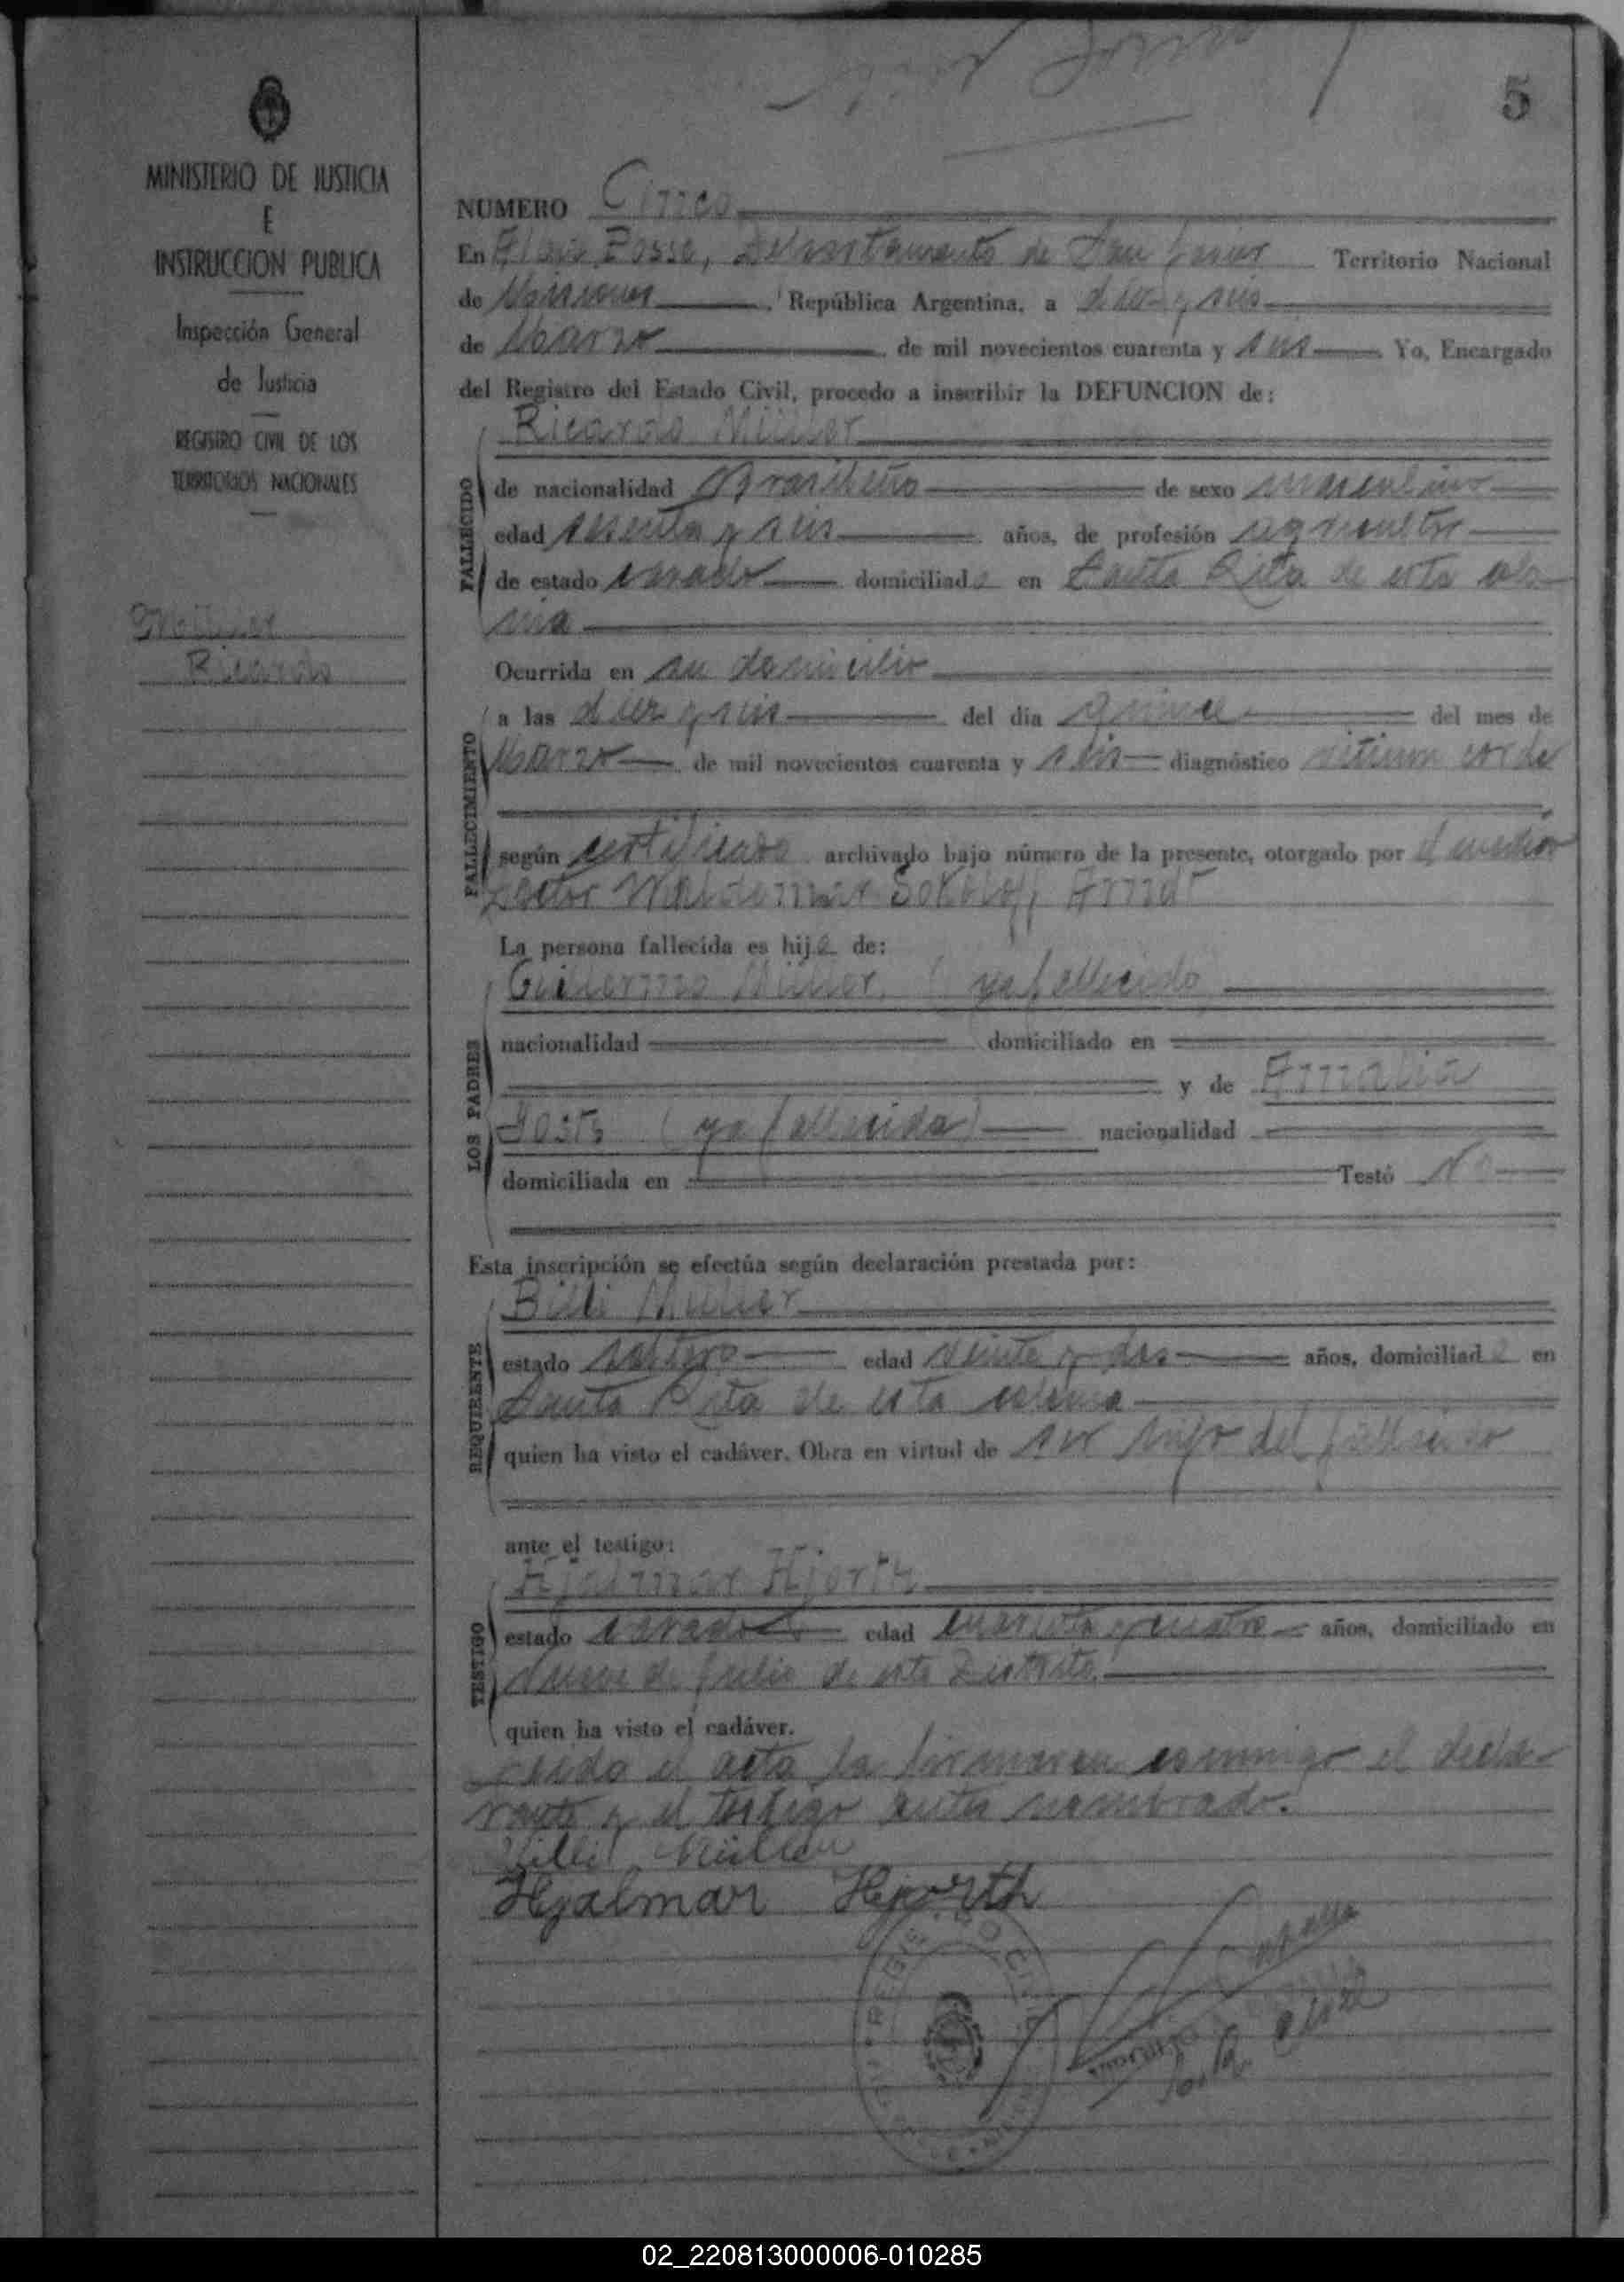 5
MINISTERIO DE JUSTICIA
E
INSTRUCCION PUBLICA
Inspección General
de Justicia
REGISTRO CIVIL DE LOS
TERRITORIOS NACIONALES
Müller
Ricardo
NUMERO Cinco
En Posse, Departamento de San Javier Territorio Nacional
de Misiones, República Argentina, a diez y seis
de Marzo de mil novecientos cuarenta y seis Yo, Encargado
del Registro del Estado Civil, procedo a inscribir la DEFUNCION de:
Ricardo Müller
FALLECIDO
de nacionalidad Brasileño de sexo masculino
edad sesenta y seis años, de profesión agricultor
de estado casado domiciliado en Santa Rita de esta colo
nia
Ocurrida en su domicilio
FALLECIMIENTO
a las diez y seis del día quince del mes de
Marzo de mil novecientos cuarenta y seis diagnóstico vitium corde
según certificado archivado bajo número de la presente, otorgado por el medico
Doctor Waldemar Sokoloff Arndt
La persona fallecida es hijo de:
LOS PADRES
Guillermo Müller, (ya fallecido
nacionalidad domiciliado en
y de Amalia
(ya fallecida) nacionalidad
domiciliada en Testó No
Esta inscripción se efectúa según declaración prestada por:
REQUIRENTE
Billi Muller
estado soltero edad veinte y dos años, domiciliado en
Santa Rita de esta colonia
quien ha visto el cadáver. Obra en virtud de ser hijo del fallecido
ante el testigo:
TESTIGO
Hjalmar Hjorth
estado casado edad cuarenta y cuatro años, domiciliado en
Nueve de Julio de este Distrito.
quien ha visto el cadáver.
Leida el acta la firmaron conmigo el decla-
rante y el testigo antes nombrado.
Willi Müller
Hjalmar Hjorth
REGISTRO CIVIL
02_220813000006-010285